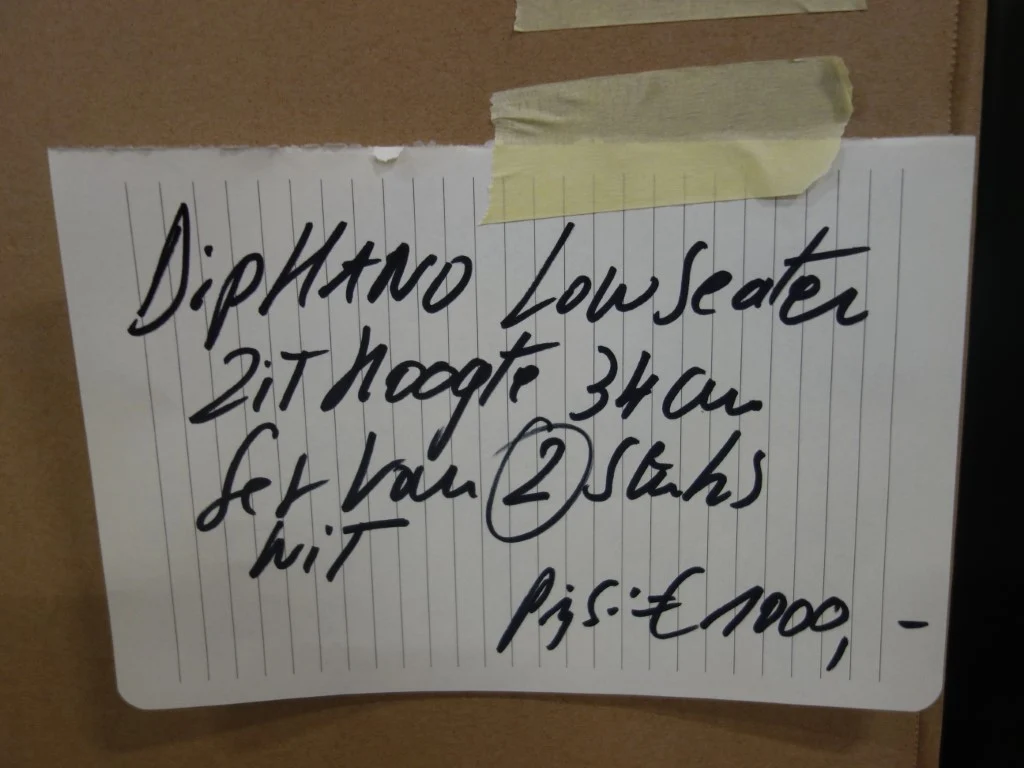 DipHANO LowSeater
ZiT hoogte 34 cm
Set van 2 Stuks
wiT
Prijs: € 1000,-